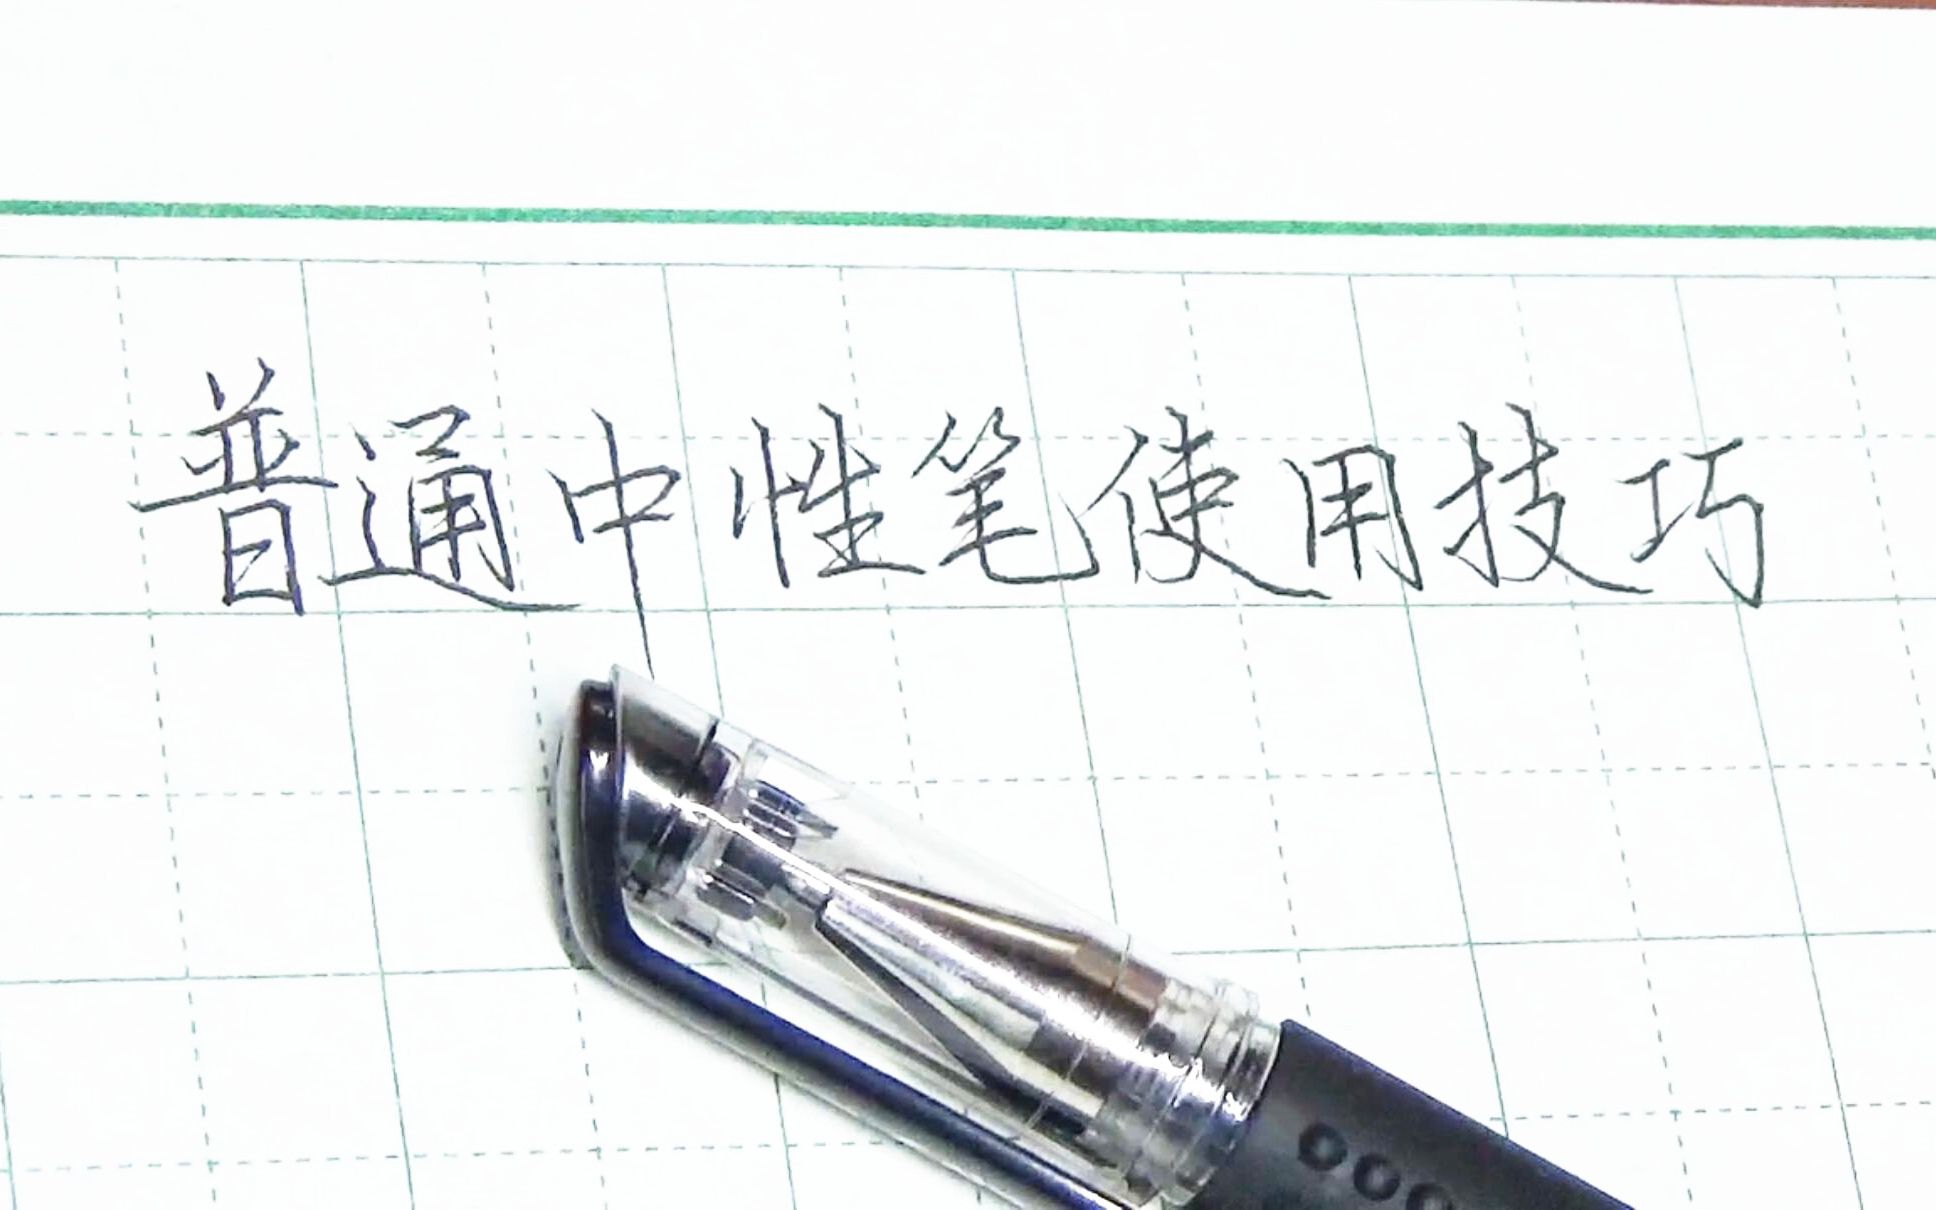 普通中性笔使用技巧